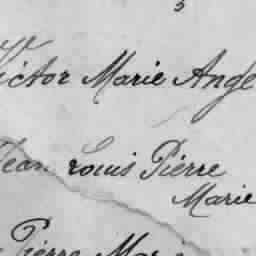 Victor Marie Ange
Jean Louis Pierre
Marie
Pierre Mar